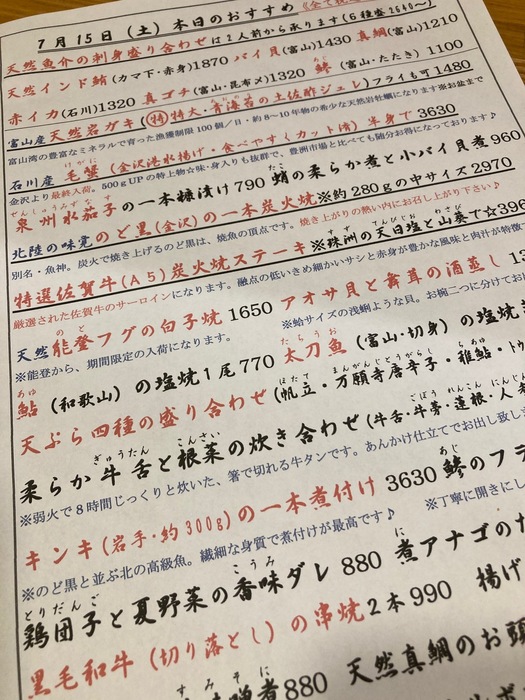 7月15日（土）本日のおすすめ
天然魚介の刺身盛り合わせは2人前から承ります(6種盛2640〜)
天然インド鮪(カマ下・赤身)1870 バイ貝(富山)1430 真鯛(富山)1210
赤イカ(石川)1320 真ゴチ(富山・昆布〆)1320 鯵(富山・たたき)1100
富山産 天然岩ガキ(特特大・青海苔の土佐酢ジュレ)フライも可1480
富山湾の豊富なミネラルで育った漁獲制限100個／日・約8〜10年物の希少な天然岩牡蠣になります※お盆まで
石川産 毛蟹(金沢港水揚げ・食べやすくカット済)半身で3630
金沢より最終入荷。500gUPの特上物☆味・身入りも抜群で、豊洲市場と比べても随分お得になっております♪
泉州水茄子の一本糠漬け790 蛸の柔らか煮と小バイ貝煮960
北陸の味覚 のど黒(金沢)の一本炭火焼※約280gの中サイズ2970
別名・魚神。炭火で焼き上げるのど黒は、焼魚の頂点です。焼き上がりの熱い内にお召し上がり下さい♪
特選佐賀牛(A5)炭火焼ステーキ※珠洲の天日塩と山葵で☆396
厳選された佐賀牛のサーロインになります。融点の低いきめ細かいサシと赤身が豊かな風味と肉汁が特徴
天然能登フグの白子焼 1650 アオサ貝と舞茸の酒蒸し
※能登から、期間限定の入荷になります。 ※蛤サイズの浅蜊ような貝。お椀二つに分けてお
鮎(和歌山)の塩焼1尾770 太刀魚(富山・切身)の塩焼
天ぷら四種の盛り合わせ(帆立・万願寺唐辛子・稚鮎・ト
柔らか牛舌と根菜の炊き合わせ(牛舌・牛蒡・蓮根・人
※弱火で8時間じっくりと炊いた、箸で切れる牛タンです。あんかけ仕立てでお出し致し
キンキ(岩手・約300g)の一本煮付け 3630 鯵のフラ
※のど黒と並ぶ北の高級魚。繊細な身質で煮付けが最高です♪ ※丁寧に開きにし
鶏団子と夏野菜の香味ダレ 880 煮アナゴの
黒毛和牛(切り落とし)の串焼2本990 揚げ
噌煮880 天然真鯛のお頭